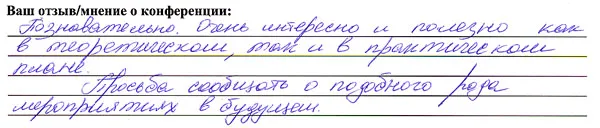 Ваш отзыв/мнение о конференции:
Познавательно. Очень интересно и полезно как
в теоретическом, так и в практическом
плане.
Просьба сообщать о подобного рода
мероприятиях в будущем.